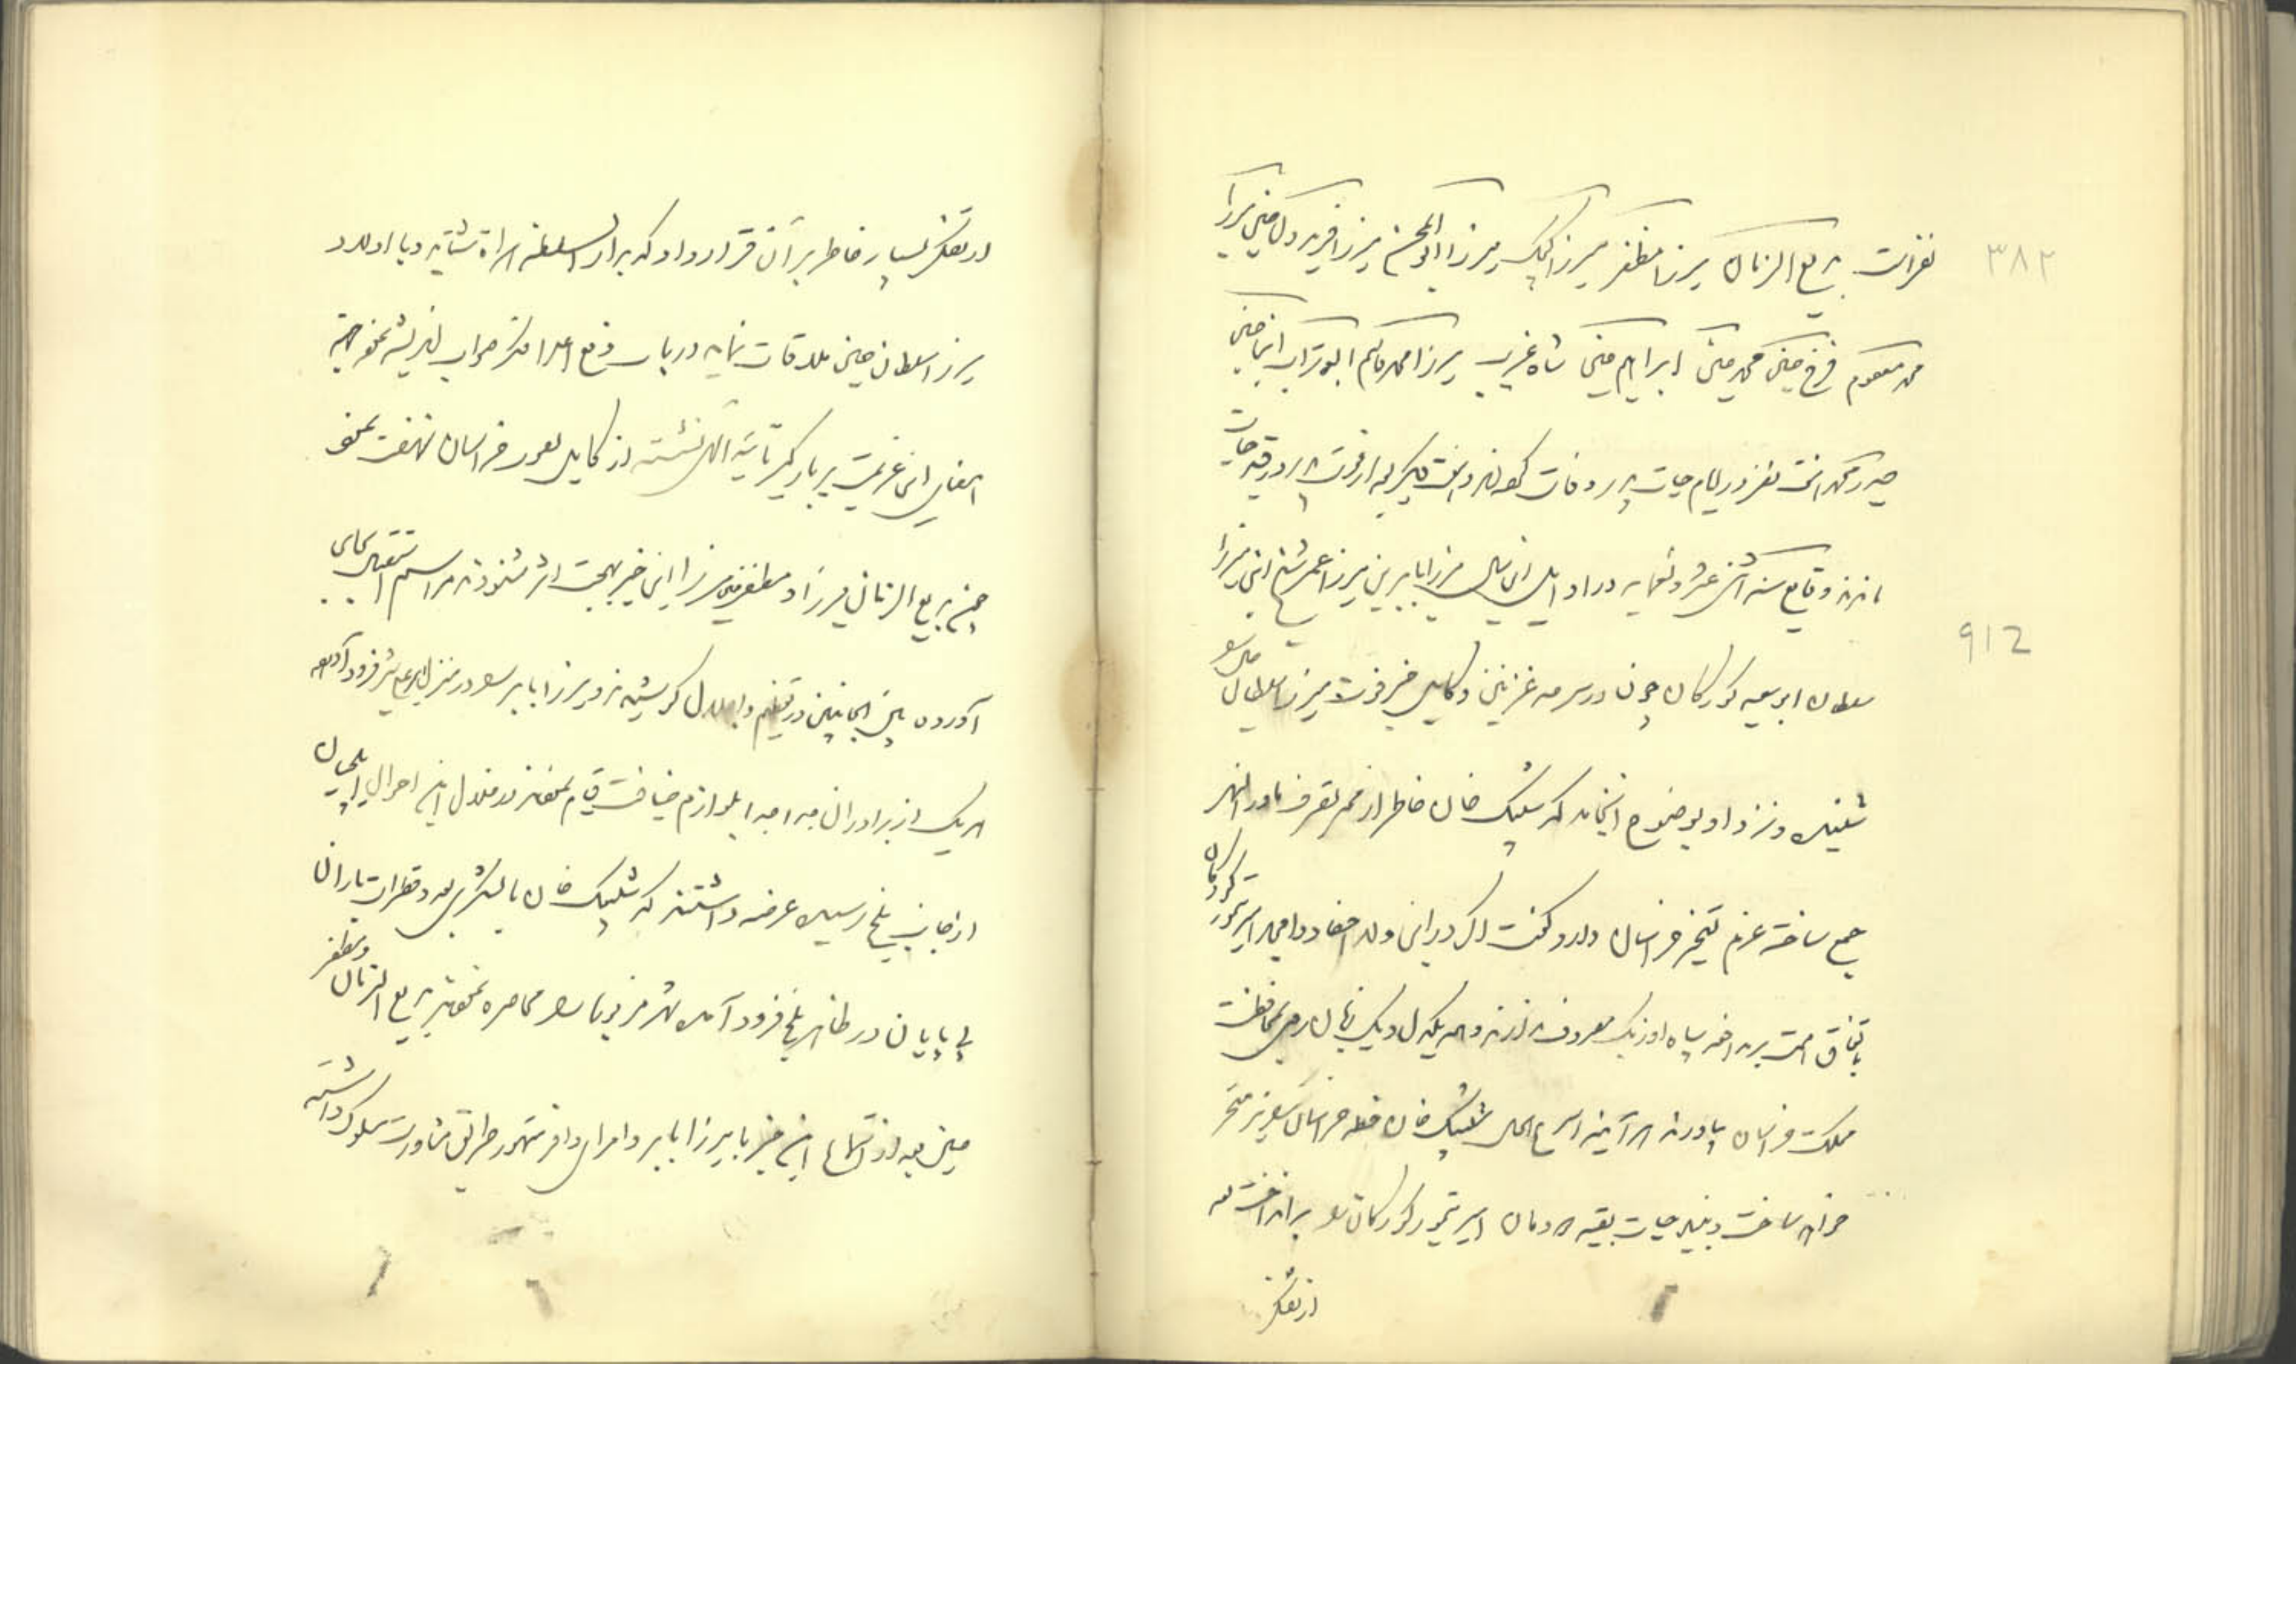 ۳۸۲
نفرات بدیع الزمان میرزا مظفر میرزا کپک میرزا ابوالمحسن میرزا فریدون حسین میرزا
محمد معصوم فرخ حسین محمد حسین ابراهیم حسین شاه غریب میرزا محمد قاسم ابوتراب ابن حسین
حیدر محمد نفر در ایام حیات پدر وفات و هفت دیگر بعد از فوت پدر در قید حیات
ماندند وقایع سنه اثنی عشر و تسعمایه در اوایل این سال میرزا بابر بن میرزا عمر شیخ ابن میرزا
912
سلطان ابو سعید کورکان چون در سرحد غزنین و کابل خبر فوت میرزا سلطان حسین
شنید و نزد او بوضوح انجامید که شیبک خان خاطر از ممر تصرف ماوراء النهر
جمع ساخته عزم تسخیر خراسان دارد و گفت اگر در این ولا احفاد و امجاد امیر تیمور کورکان
باتفاق همت بر سپاه اوزبک مصروف ندارند و همه یکدل و یک زبان روی بمحافظت
مملکت خراسان نیاورند هر آینه اسرع الحال شیبک خان خطه خراسان نیز مسخر
خواهد ساخت و بنیاد حیات بقیه دودمان امیر تیمور کورکان بر انداخت
از تفکر
از تفکر بسیار خاطر بر آن قرار داد که بدار السلطنه هراة شتابد و با اولاد
میرزا سلطان حسین ملاقات نماید در باب دفع اعدا فکر صواب اندیشد
امضای این عزیمت بر بارگیر تائید الهی نشسته از کابل بصوب خراسان نهضت نمود
چون بدیع الزمان میرزا و مظفر حسین میرزا این خبر بهجت اثر شنودند مراسم استقبال بجای
آورده بین الجانبین در تعظیم و اجلال کوشیدند و میرزا بابر در منزل فرود آورده
هر یک از برادران جدا جدا بلوازم ضیافت قیام نمودند در خلال این احوال ایلچیان
از جانب بلخ رسیده عرضه داشتند که شیبک خان با لشکری بعدد قطرات باران
بی پایان در ظاهر بلخ فرود آمده شهر محاصره نمود بدیع الزمان و مظفر
حسین بعد از استماع این خبر با میرزا بابر و امرای طریق مشاورت مسلوک داشته